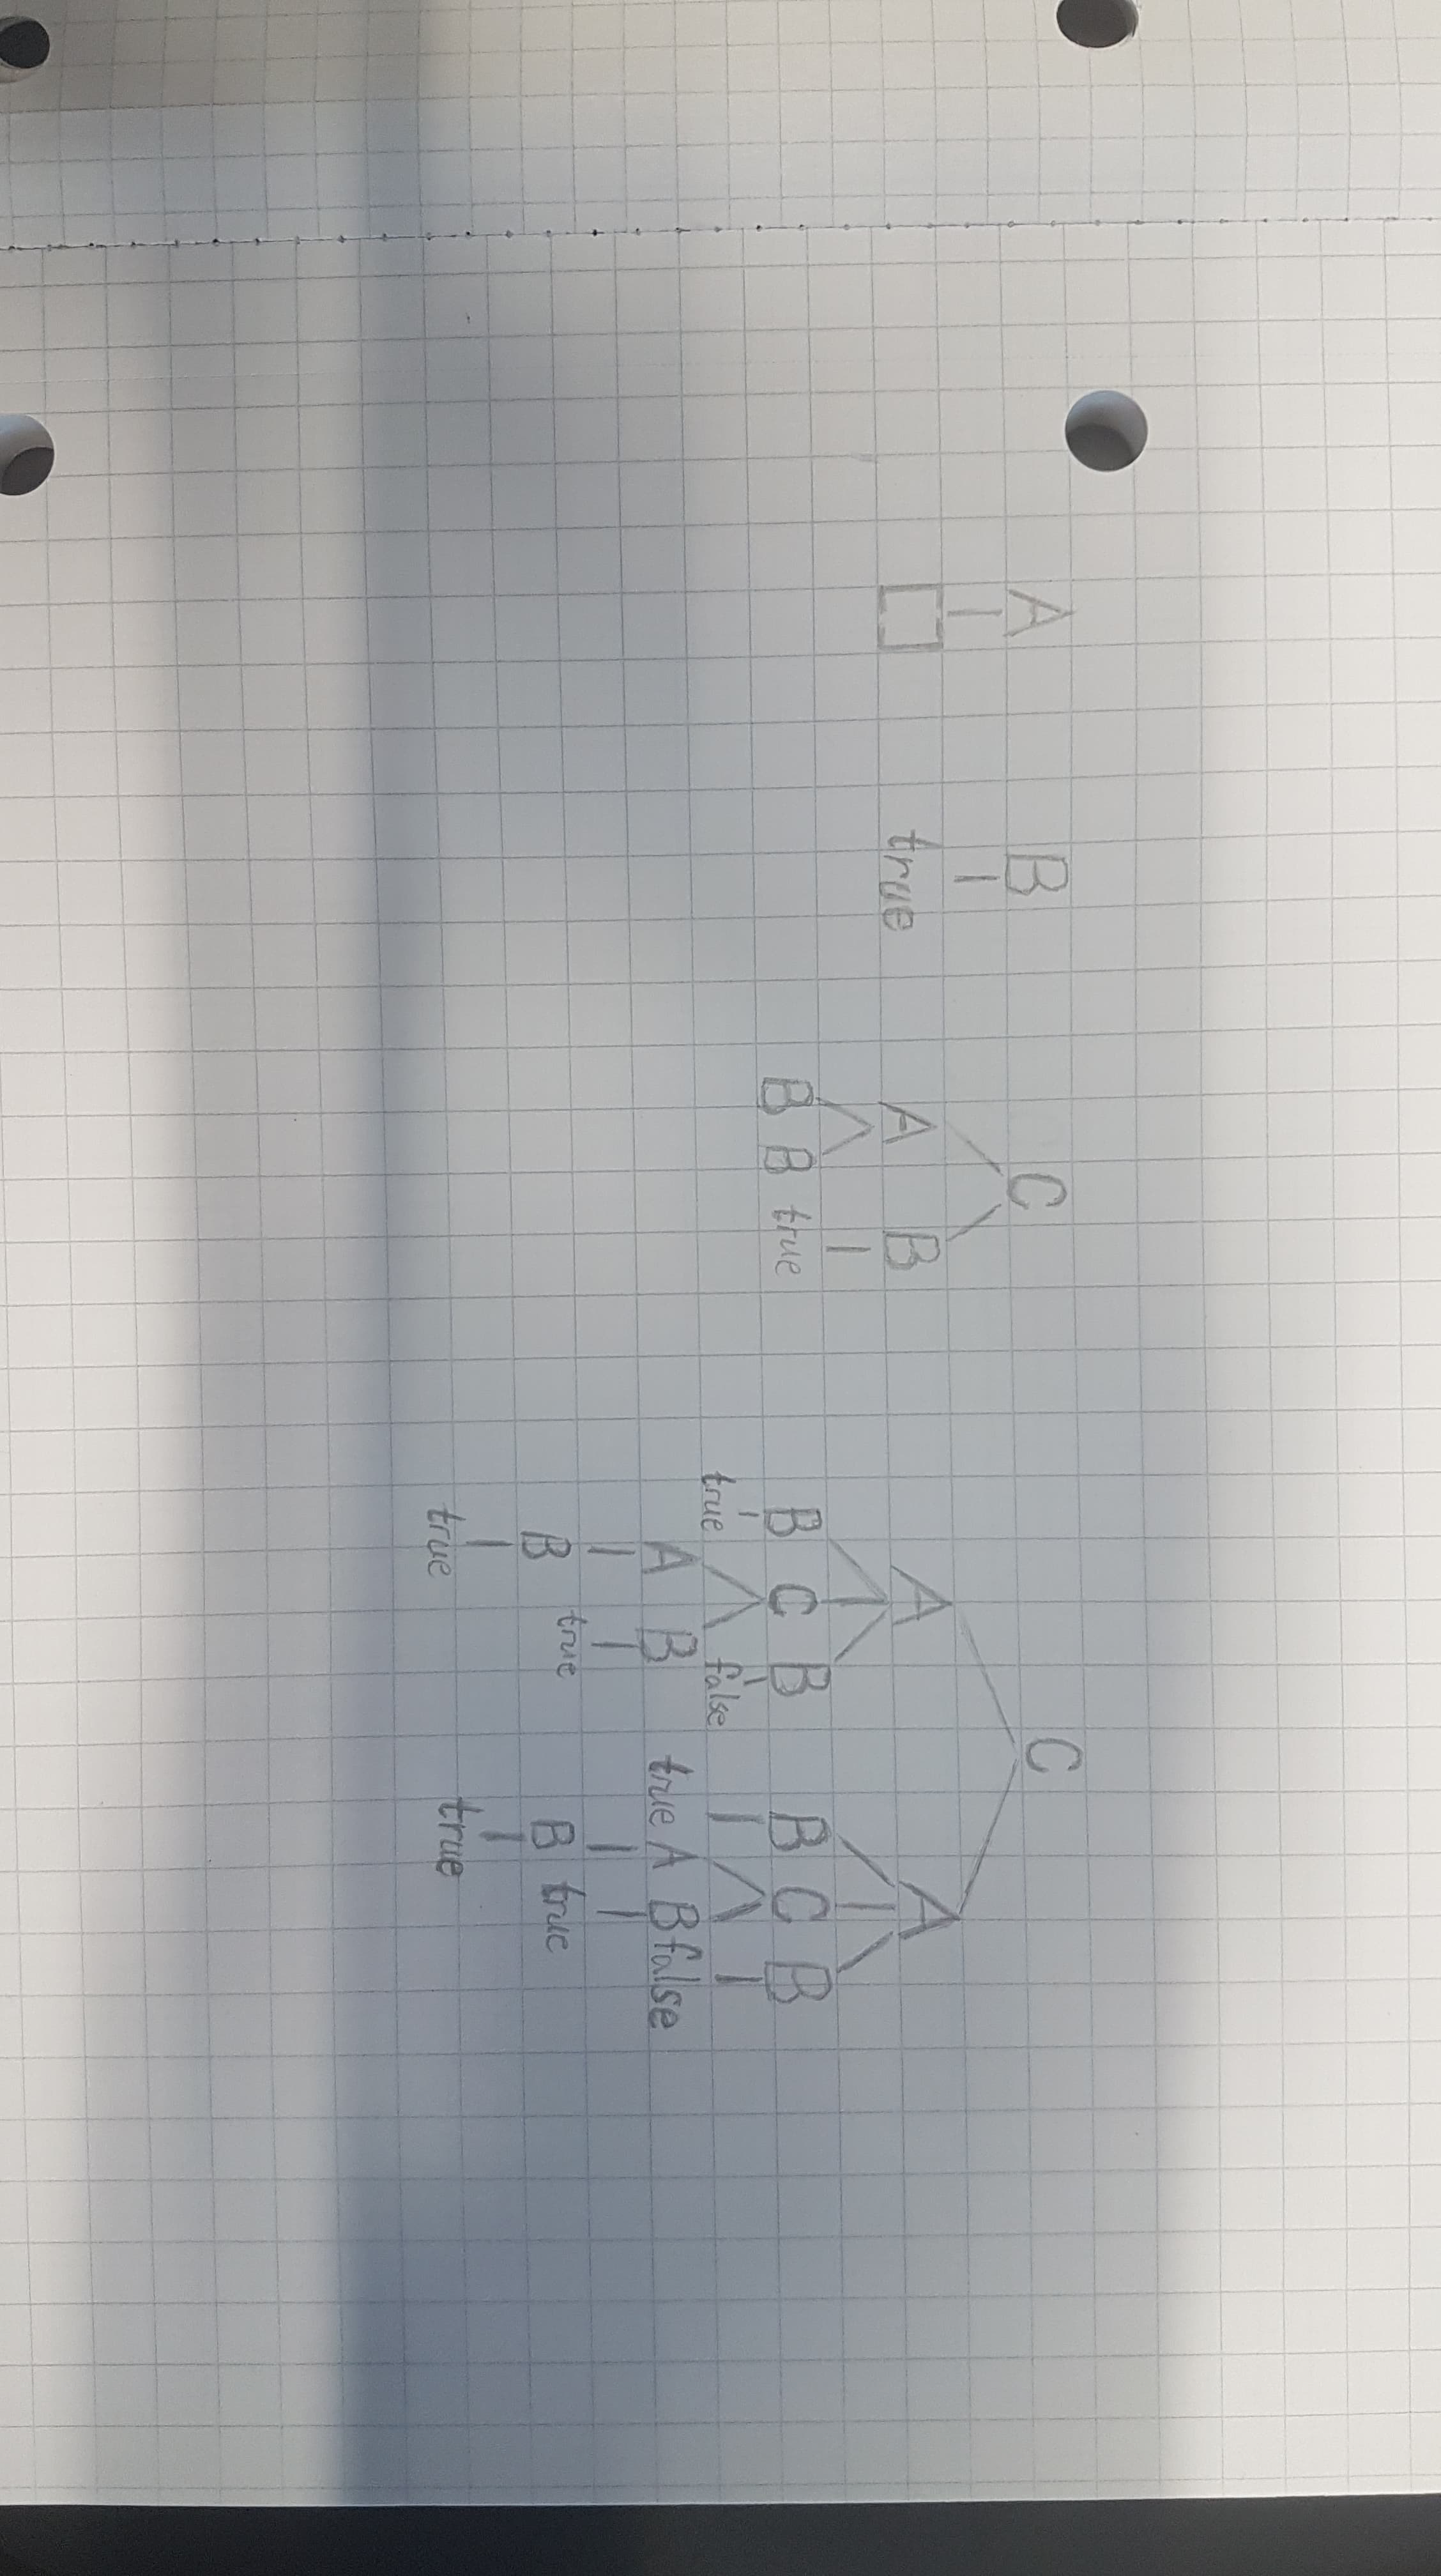 A B C C
true A B A A
B B true B C B B C B
true false
A B true A B false
B true B true
true true